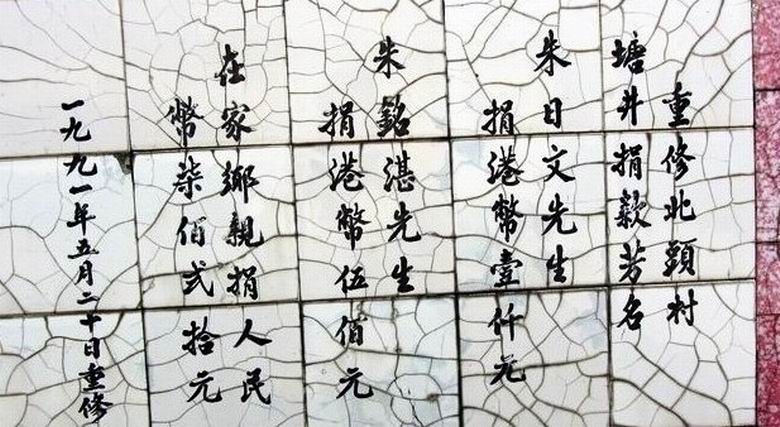 重修北頭村
塘井捐款芳名
朱日文先生
捐港幣壹仟元
朱銘湛先生
捐港幣伍佰元
在家鄉親捐人民
幣柒佰弍拾元
一九九一年五月二十日重修